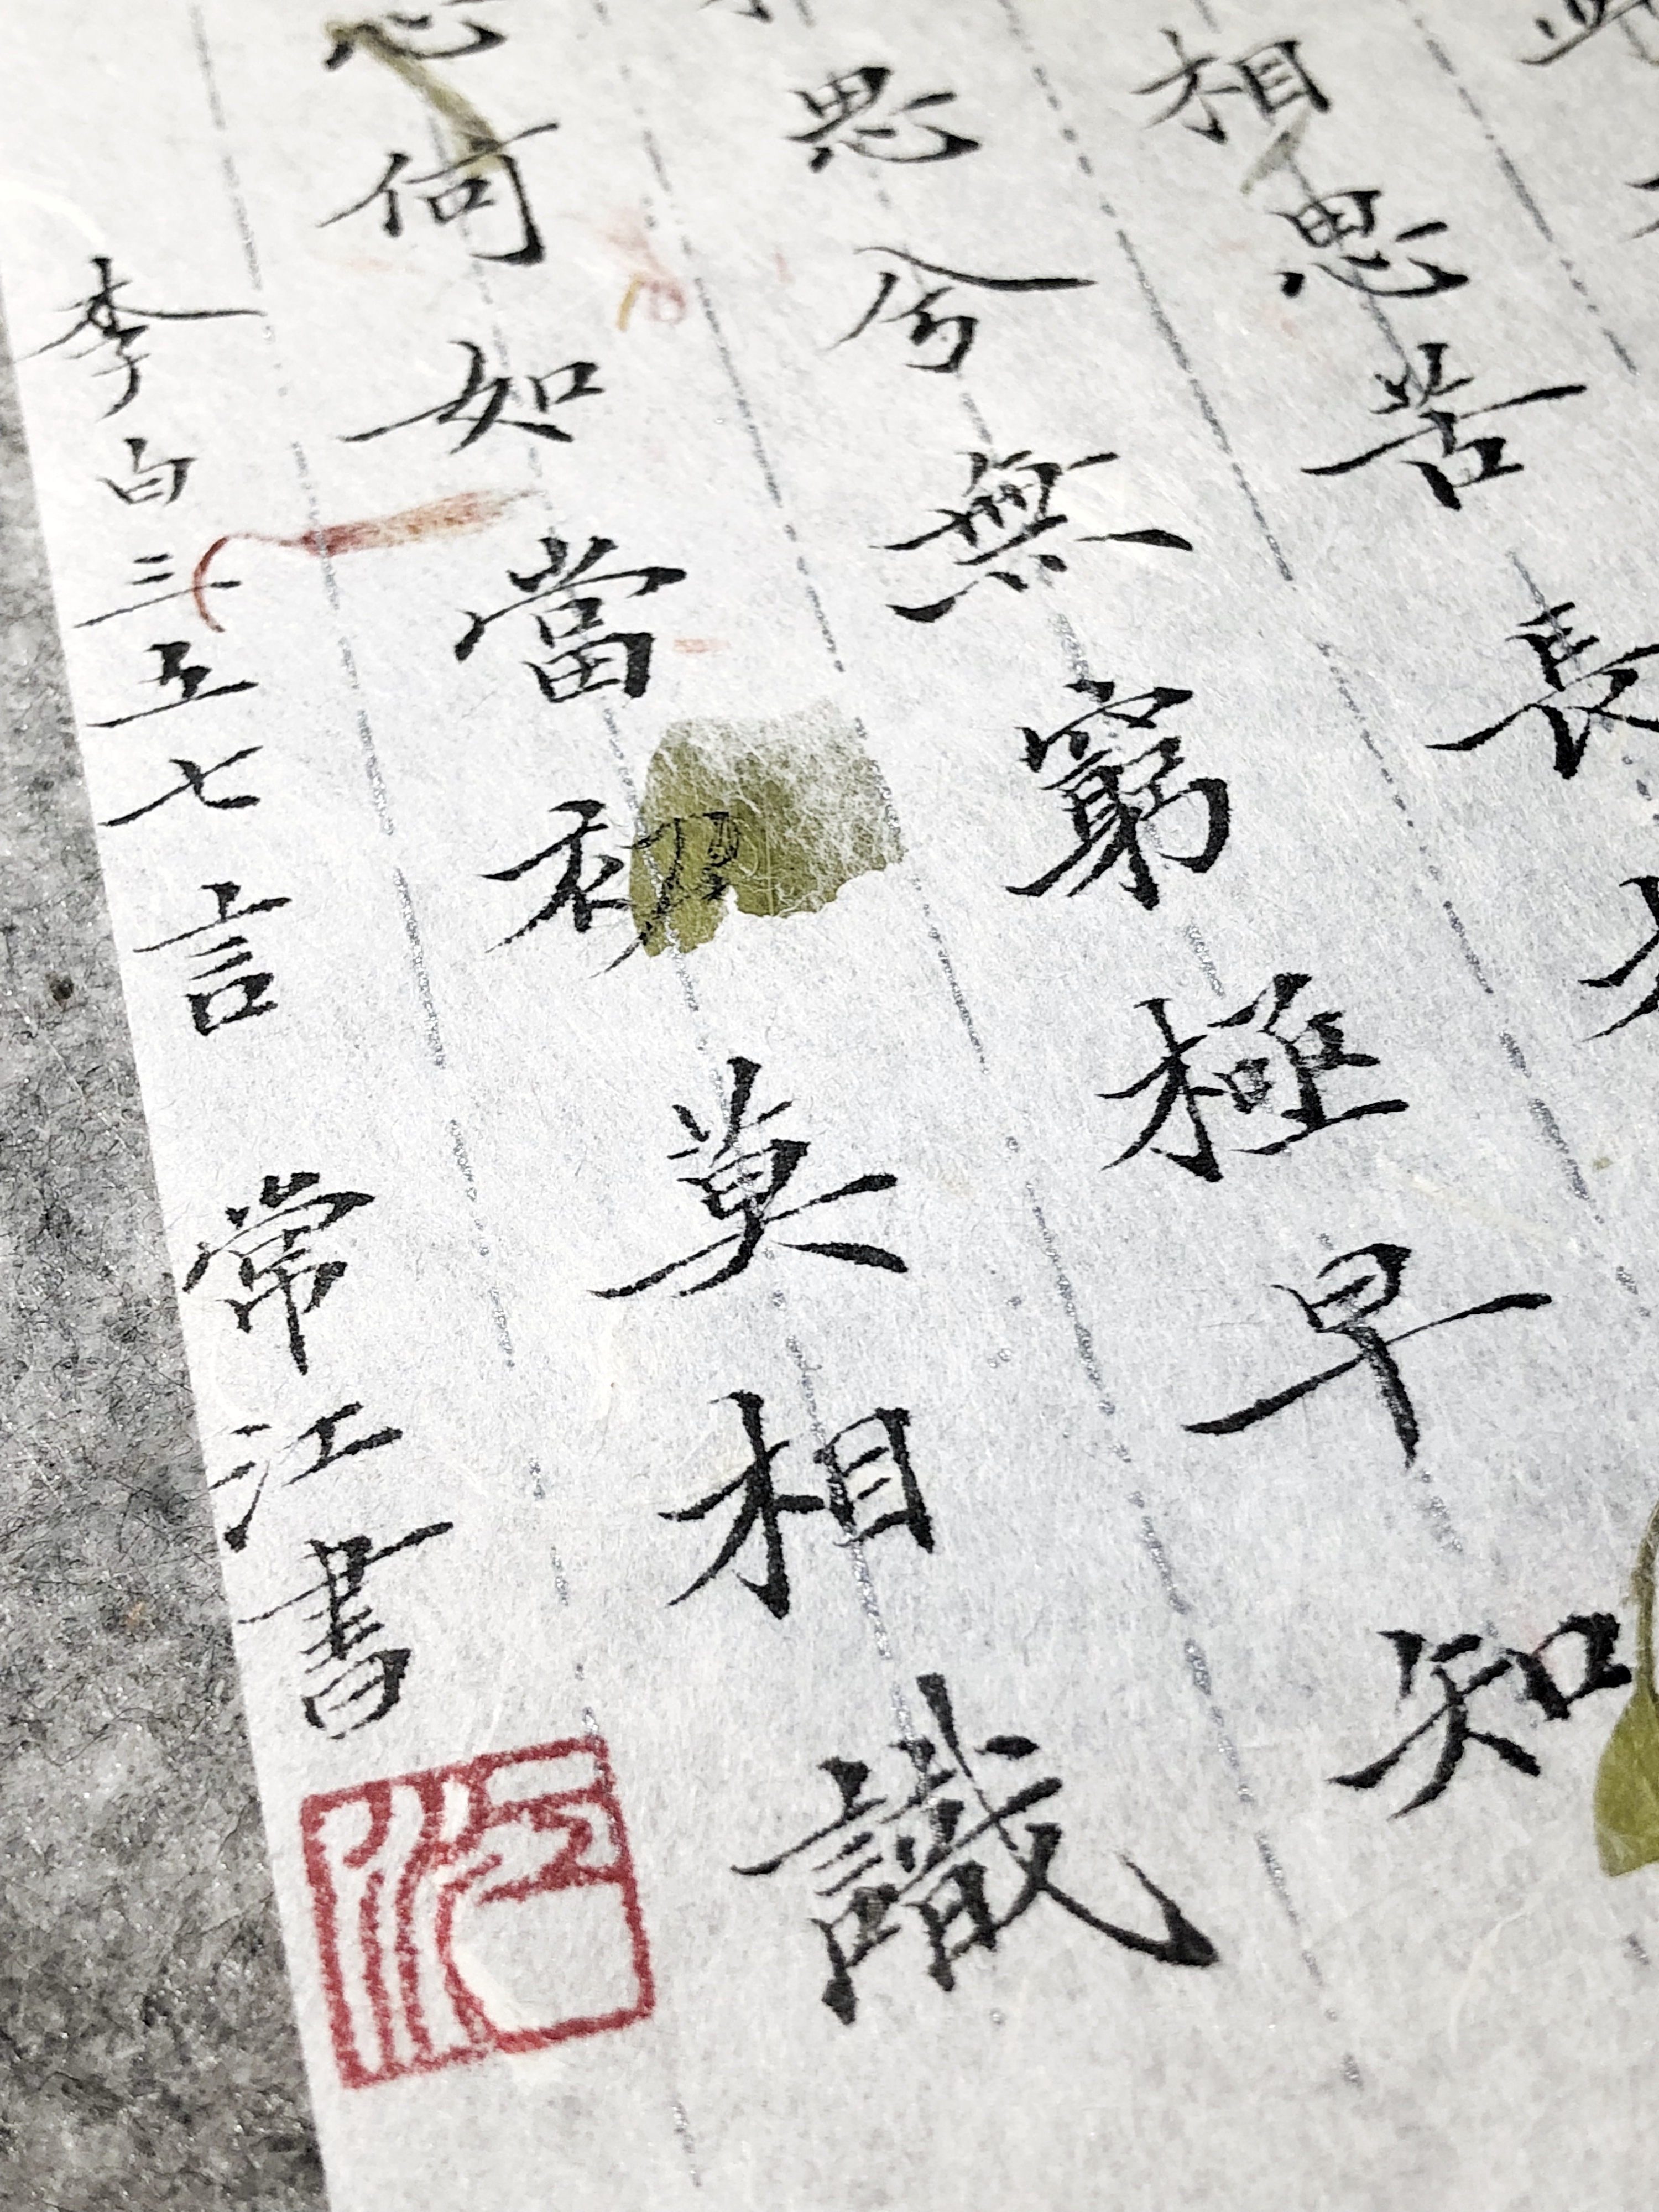 相思苦長
思兮無窮極早知
心何如當初莫相識
李白三五七言 常江書
江